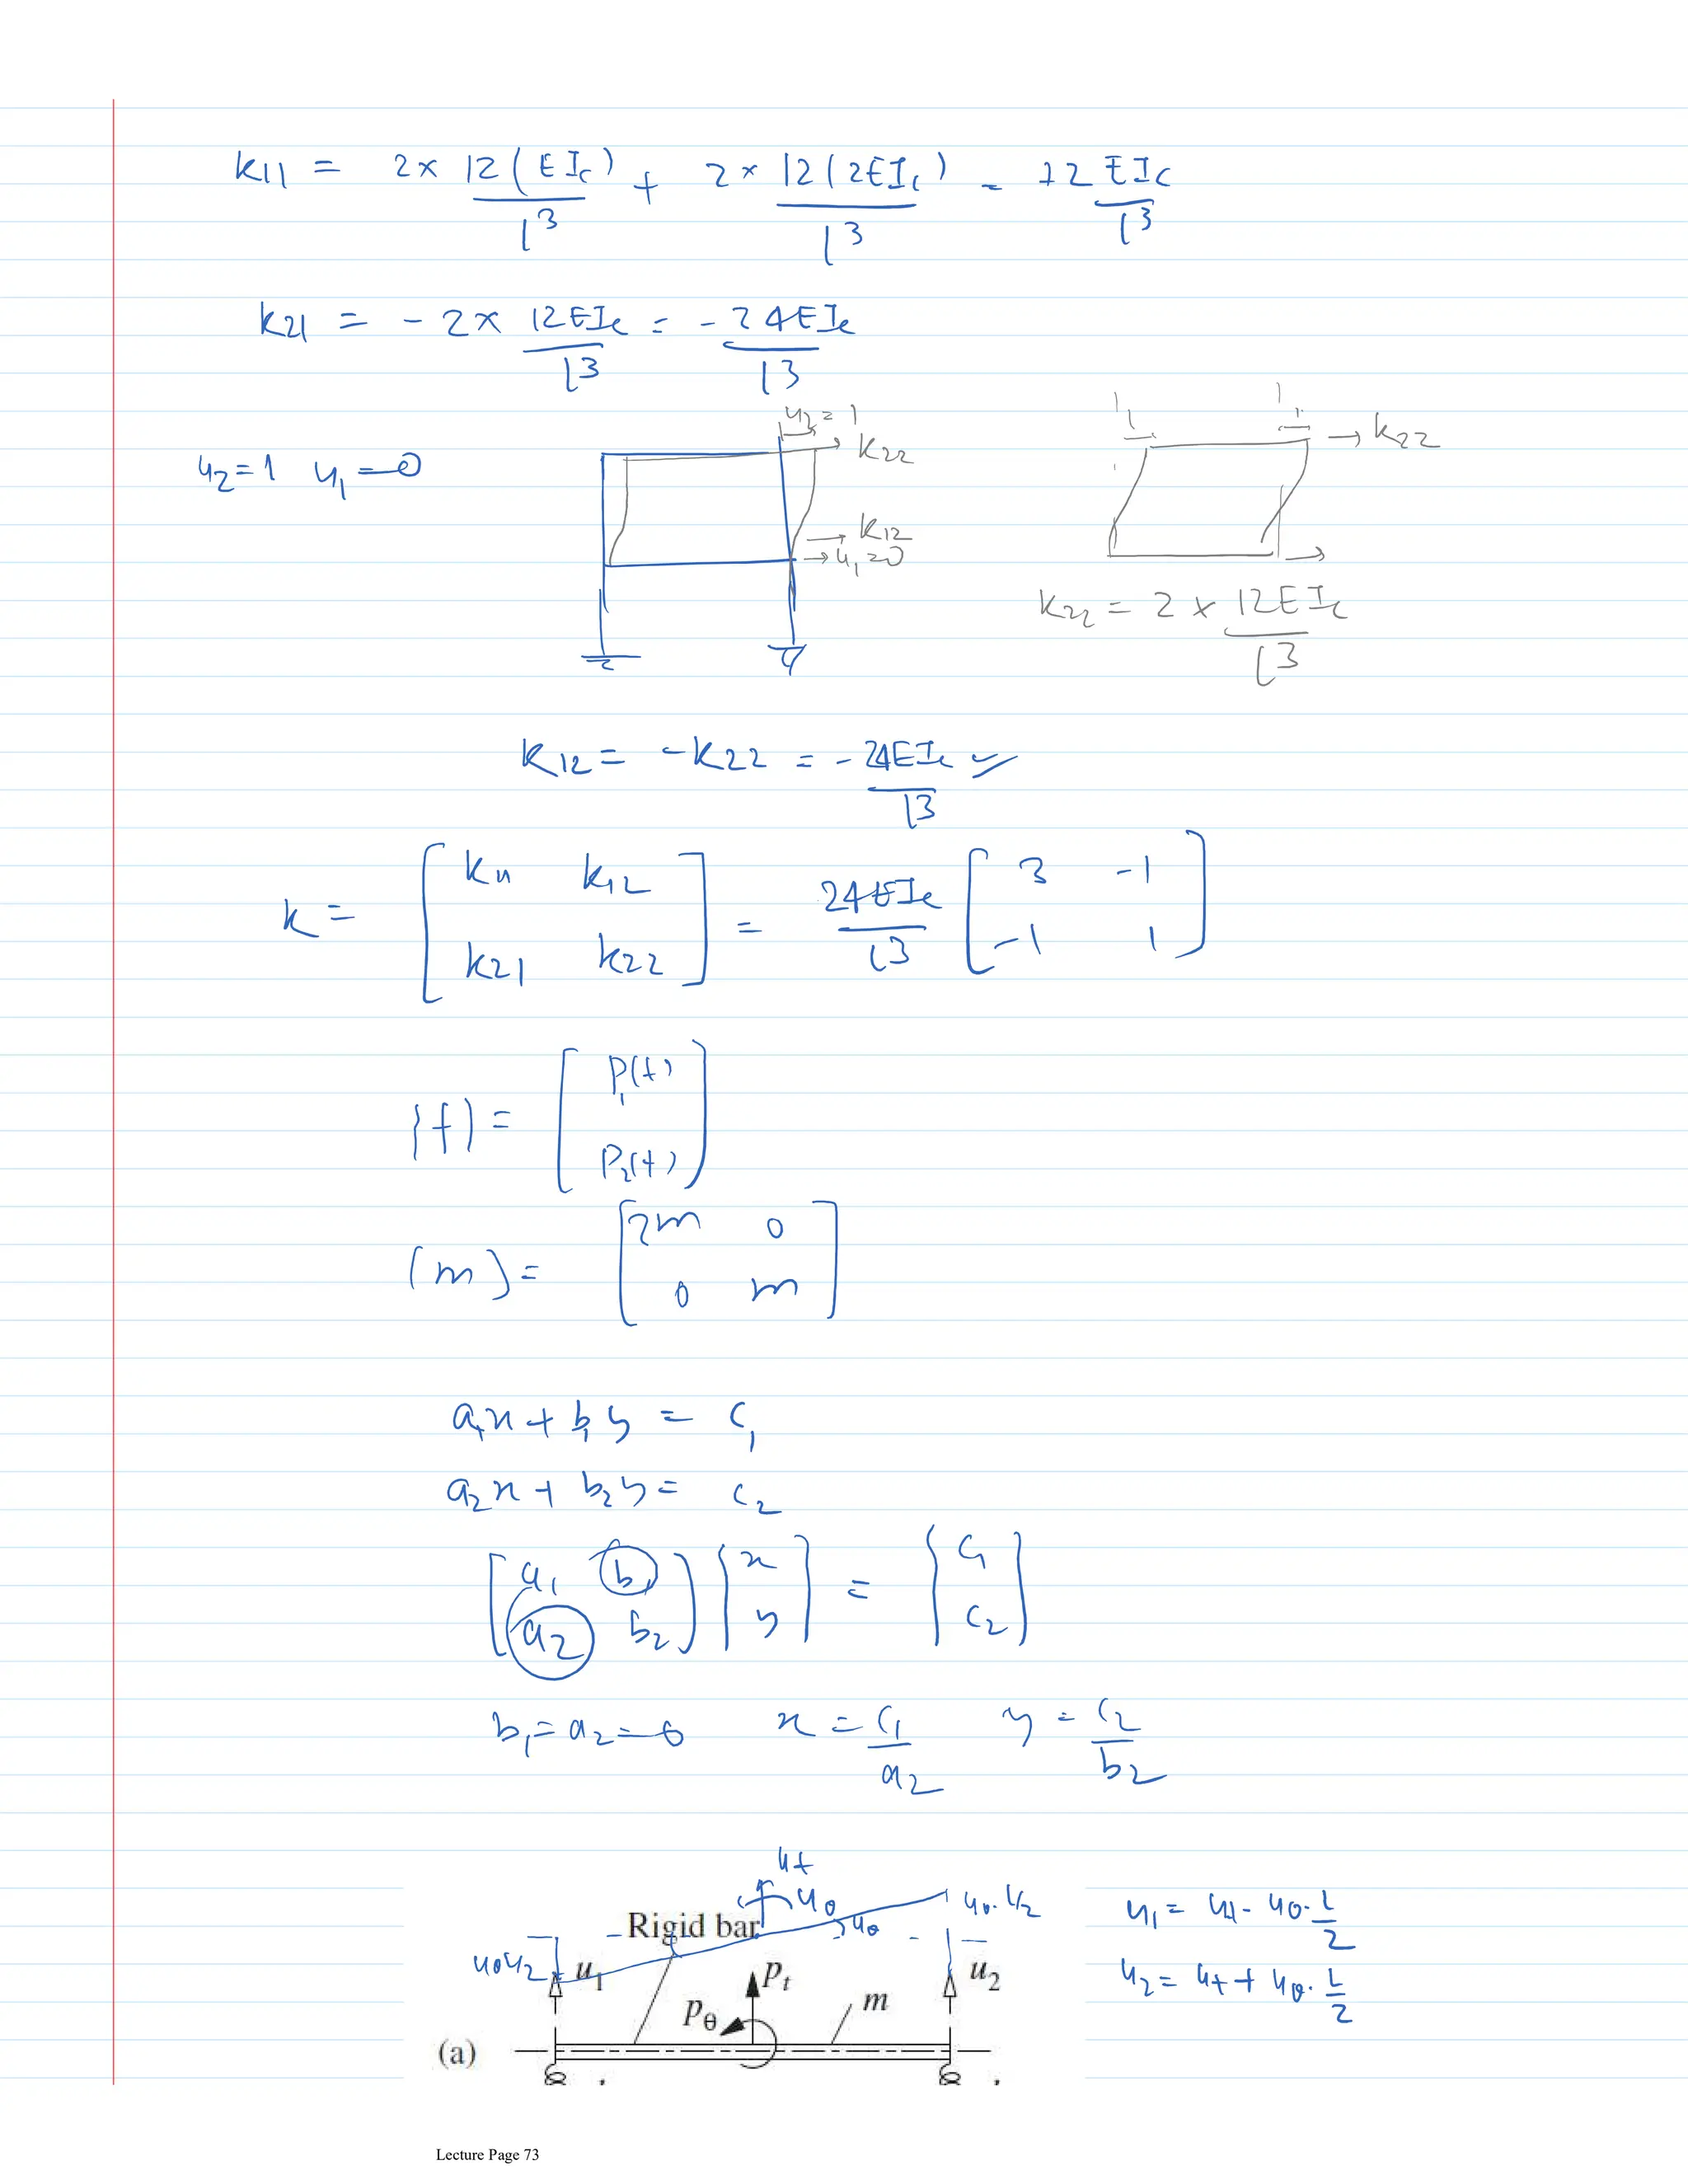 k11 = 2 × 12(EIc)/l^3 + 2 × 12(2EIc)/l^3 = 72 EIc/l^3
k21 = - 2 × 12EIc/l^3 = - 24EIc/l^3
u2 = 1 u1 = 0
u2 = 1
→ k22
→ k12
→ u1 = 0
1 1
→ k22
k22 = 2 × 12EIc/l^3
k12 = -k22 = - 24EIc/l^3 ✓
k = [k11 k12; k21 k22] = 24EIc/l^3 [3 -1; -1 1]
{f} = [P1(t); P2(t)]
[m] = [2m 0; 0 m]
a1x + b1y = c1
a2x + b2y = c2
[a1 b1; a2 b2] {x; y} = {c1; c2}
b1 = a2 = 0 x = c1/a2 y = c2/b2
ut
uθ
uθ·L/2
u1 = ut - uθ·L/2
Rigid bar
uθ
uθL/2
u1
pt
u2
u2 = ut + uθ·L/2
pθ
m
(a)
Lecture Page 73